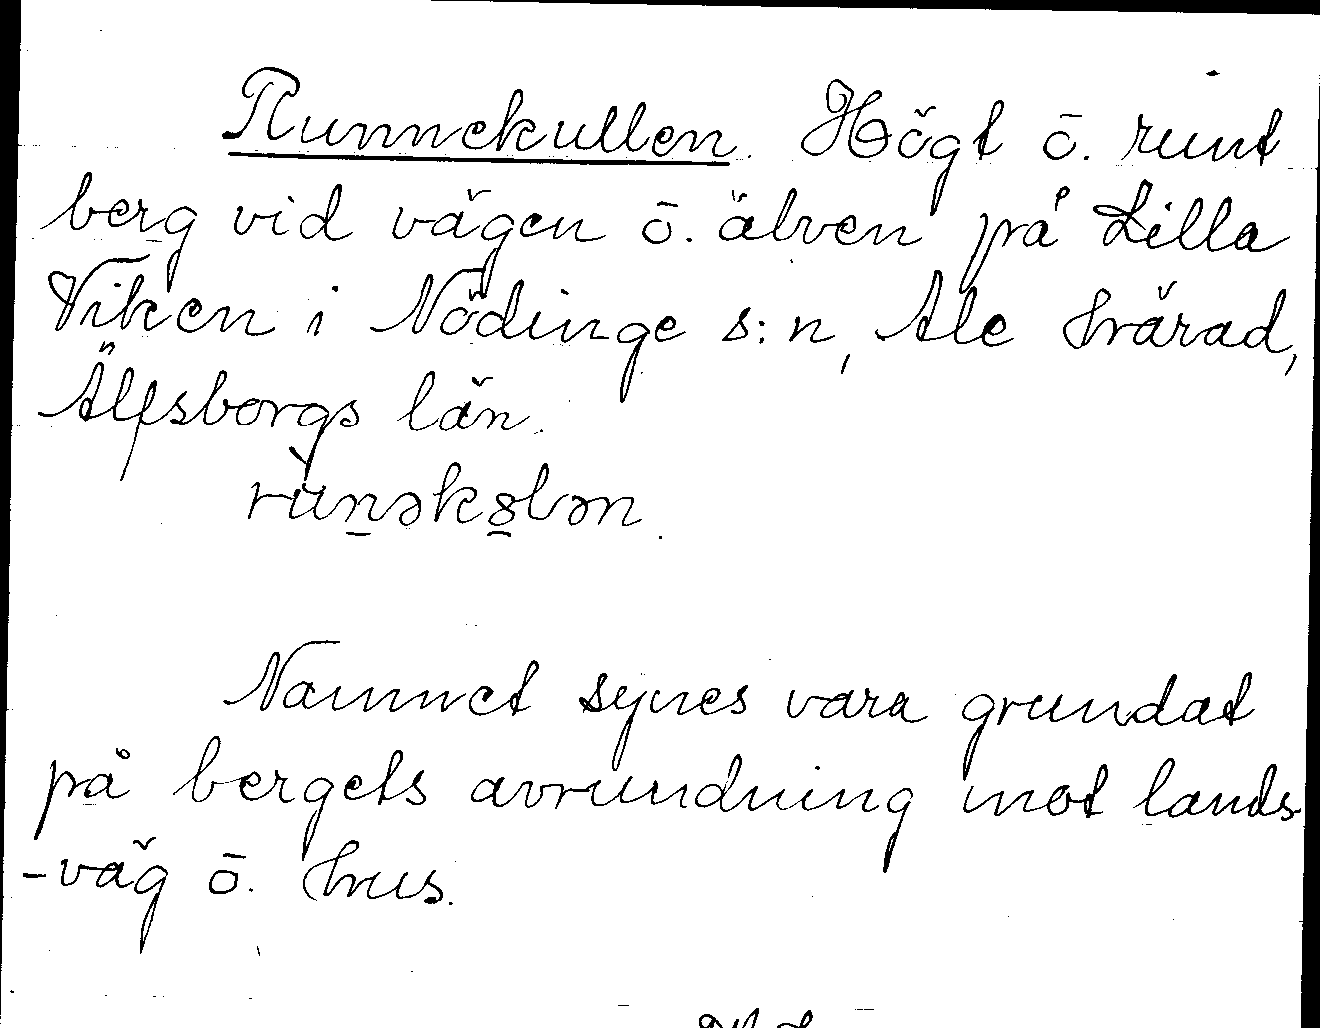 Runnekullen. Högt ō. runt
berg vid vägen ō. älven på Lilla
Viken i Nödinge s:n, Ale härad,
Älfsborgs län.
rùnəkslən.
Namnet synes vara grundat
på bergets avrundning mot lands-
-väg ō. hus.